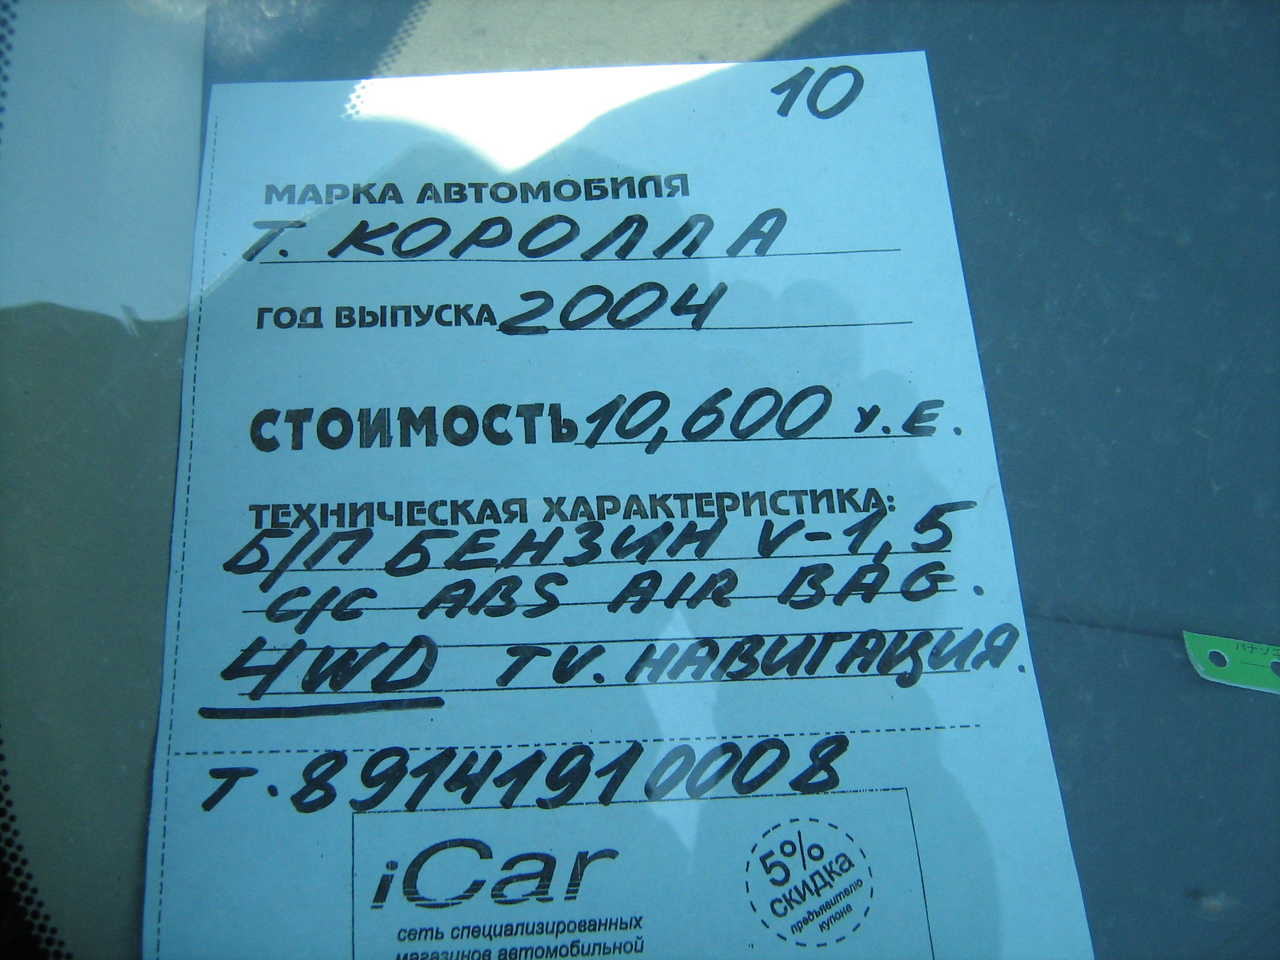 10
МАРКА АВТОМОБИЛЯ
Т. КОРОЛЛА
ГОД ВЫПУСКА 2004
СТОИМОСТЬ 10,600 У.Е.
ТЕХНИЧЕСКАЯ ХАРАКТЕРИСТИКА:
Б/П БЕНЗИН V-1,5
С/С ABS AIR BAG.
4WD TV. НАВИГАЦИЯ.
Т. 89141910008
iCar
5%
СКИДКА
предъявителю
купона
сеть специализированных
магазинов автомобильной